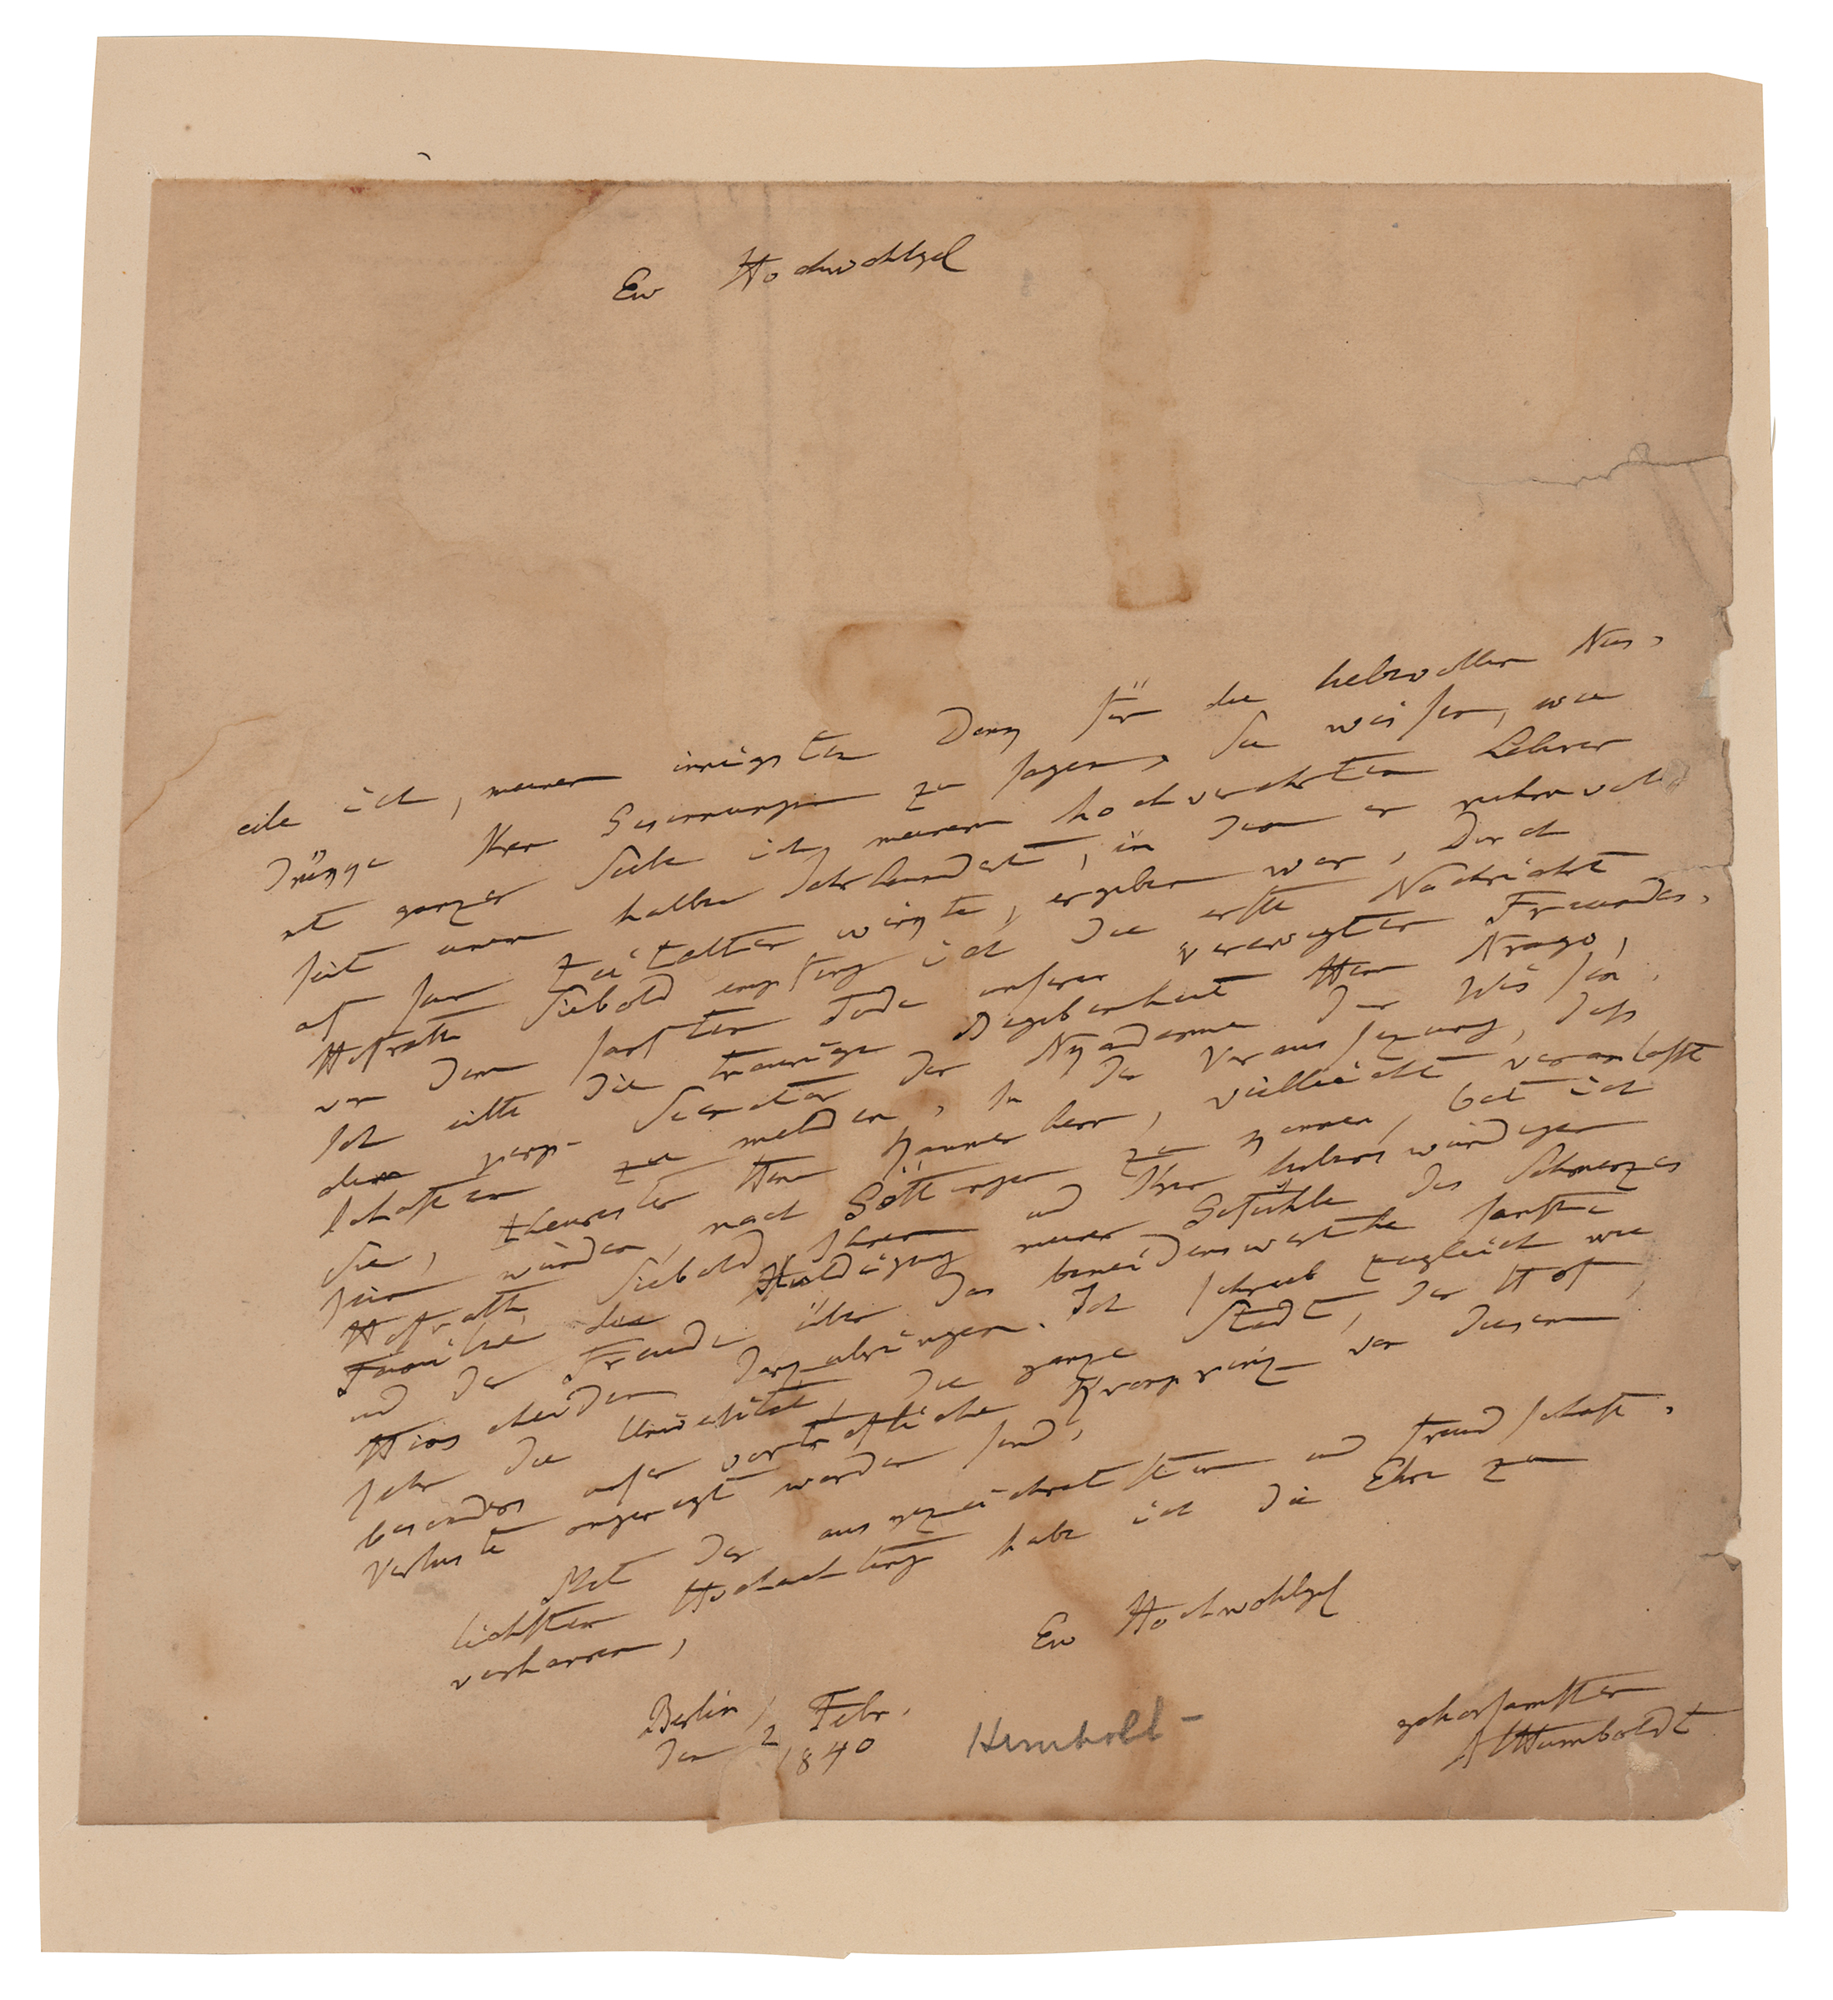 Ew Hochwohlgeb
eile ich, meinen innigsten Dank für die liebevollen Aus,
drücke Ihrer Gesinnungen zu sagen, Sie wissen, wie
mit ganzer Seele ich meinem hochverehrten Lehrer
seit einem halben Jahrhundert, in dem er ruhmvoll
auf sein Zeitalter wirkte, ergeben war, Durch
Hofrath Siebold empfing ich die erste Nachricht
von dem sanften Tode unseres verewigten Freundes,
Ich eilte die traurige Begebenheit Herrn Arago,
dem perp. Secretär der Akademie der Wissen,
schaften zu melden, In der Voraussezung, dass
Sie, theurester Herr Kammerherr, vielleicht veranlasst
sein würden, nach Göttingen zu kommen, bat ich
Hofrath Siebold Ihnen und Ihrer liebenswürdigen
Familie die Huldigung meiner Gefühle des Schmerzes
und der Freude über das beneidenswerthe sanfte
Hinscheiden darzubringen. Ich schrieb zugleich wie
sehr die Universität, die ganze Stadt, der Hof,
besonders unser vortrefliche Kronprinz von diesem
Verluste angeregt worden sind,
Mit der ausgezeichnetsten und freundschaft,
lichsten Hochachtung habe ich die Ehre zu
verharren,
Ew Hochwohlgeb
Berlin, gehorsamster
den 2 Febr. AlHumboldt
1840
Humboldt -